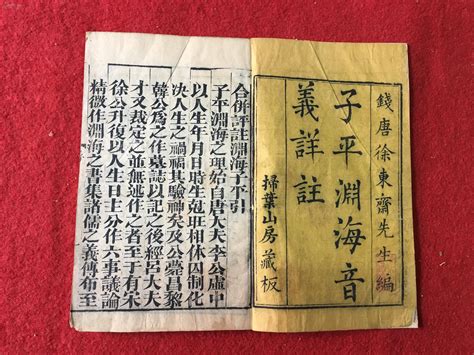 錢唐徐東齋先生編
子平淵海音
義詳註
掃葉山房藏板
合併評註淵海子平引
子平淵海之理始自唐大夫李公虛中
以人生年月日時生尅旺相休囚制化
決人生之禍福其驗神矣及公薨昌黎
韓公為之作墓誌以記之後經呂大夫
才又裁定之並無述作之者至于有宋
徐公升復以人生日主分作六事議論
精微作淵海之書集諸儒之義傳布至